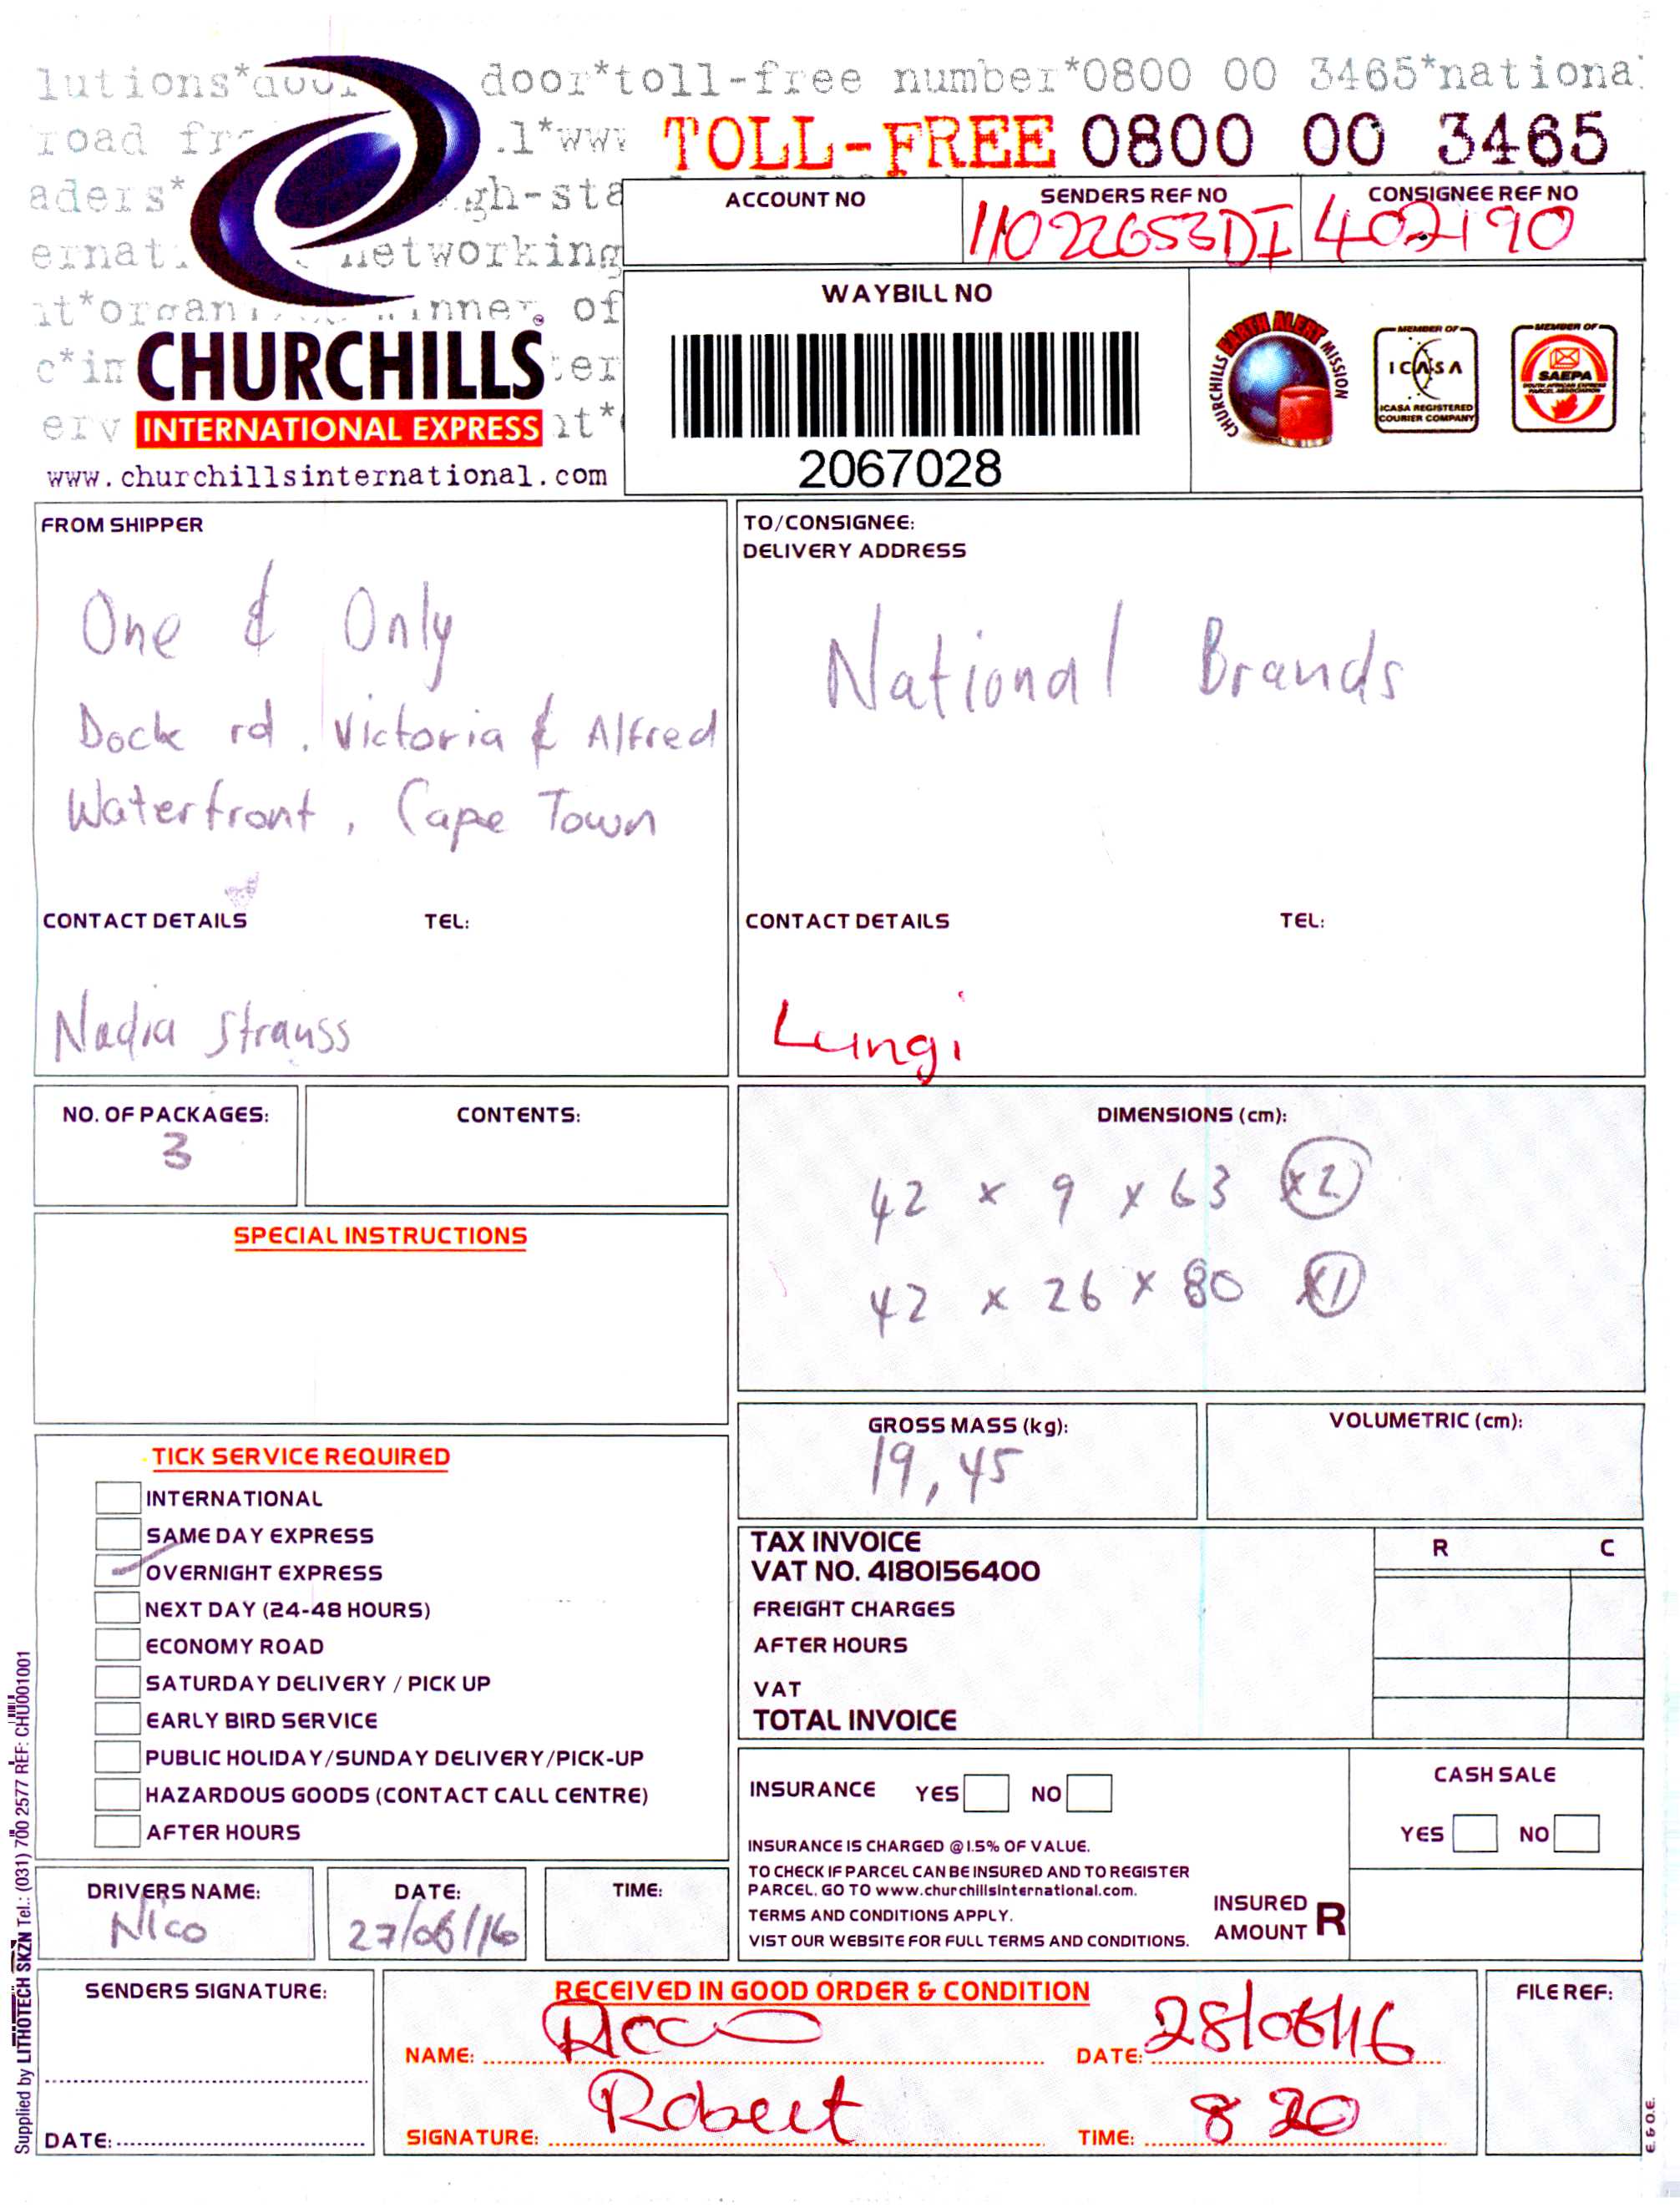 lutions*door door*toll-free number*0800 00 3465*national
road fr .l*www
TOLL-FREE 0800 00 3465
aders* gh-sta
ernat networking
it*organ inner of
c*in ter
erv nt*
CHURCHILLS
INTERNATIONAL EXPRESS
www.churchillsinternational.com
ACCOUNT NO
SENDERS REF NO
11022653DI
CONSIGNEE REF NO
402190
WAYBILL NO
2067028
CHURCHILLS EARTH ALERT MISSION
MEMBER OF
ICASA
ICASA REGISTERED
COURIER COMPANY
MEMBER OF
SAEPA
SOUTH AFRICAN EXPRESS
PARCEL ASSOCIATION
FROM SHIPPER
One & Only
Dock rd, Victoria & Alfred
Waterfront, Cape Town
CONTACT DETAILS TEL:
Nadia Strauss
TO/CONSIGNEE:
DELIVERY ADDRESS
National Brands
CONTACT DETAILS TEL:
Lungi
NO. OF PACKAGES:
3
CONTENTS:
DIMENSIONS (cm):
42 x 9 x 63 x2
42 x 26 x 80 x1
SPECIAL INSTRUCTIONS
GROSS MASS (kg):
19,45
VOLUMETRIC (cm):
TICK SERVICE REQUIRED
INTERNATIONAL
SAME DAY EXPRESS
OVERNIGHT EXPRESS
NEXT DAY (24-48 HOURS)
ECONOMY ROAD
SATURDAY DELIVERY / PICK UP
EARLY BIRD SERVICE
PUBLIC HOLIDAY/SUNDAY DELIVERY/PICK-UP
HAZARDOUS GOODS (CONTACT CALL CENTRE)
AFTER HOURS
TAX INVOICE R C
VAT NO. 4180156400
FREIGHT CHARGES
AFTER HOURS
VAT
TOTAL INVOICE
INSURANCE YES NO
INSURANCE IS CHARGED @ 1.5% OF VALUE.
TO CHECK IF PARCEL CAN BE INSURED AND TO REGISTER
PARCEL. GO TO www.churchillsinternational.com.
TERMS AND CONDITIONS APPLY.
VIST OUR WEBSITE FOR FULL TERMS AND CONDITIONS.
CASH SALE
YES NO
INSURED
AMOUNT R
DRIVERS NAME:
Nico
DATE:
27/06/16
TIME:
SENDERS SIGNATURE:
DATE:
RECEIVED IN GOOD ORDER & CONDITION
NAME:
DATE: 28/06/16
SIGNATURE: Robert
TIME: 8 20
FILE REF:
E. & O.E.
Supplied by LITHOTECH SKZN Tel.: (031) 700 2577 REF: CHU001001